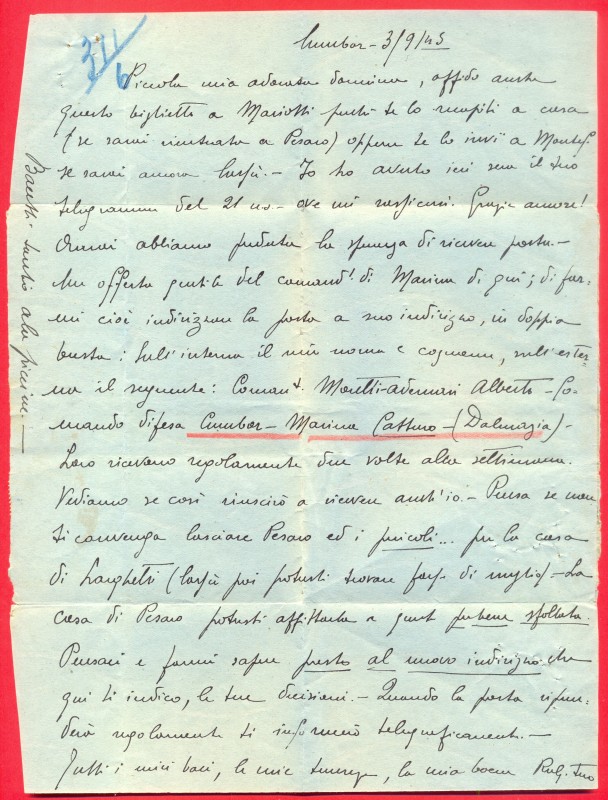 Cumbor - 3/9/43
Piccola mia adorata donnina, affido anche
questo biglietto a Mariotti perché te lo recapiti a casa
(se sarai rientrata a Pesaro) oppure te lo invii a
se sarai ancora lassù. - Io ho avuto ieri sera il tuo
telegramma del 21 u.s. - ove mi rassicuri. Grazie amore!
Ormai abbiamo perduta la speranza di ricevere posta. -
Ho offerta gentile del comand! di Marina di qui; di far-
mi cioè indirizzare la posta a suo indirizzo, in doppia
busta: sull'interna il mio nome e cognome, sull'ester-
na il seguente: Coman t. Alberto - Co-
mando difesa Cumbor - Marina Cattaro - (Dalmazia) -
Loro ricevono regolarmente due volte alla settimana.
Vediamo se così riuscirò a ricevere anch'io. - Pensa se non
ti convenga lasciare Pesaro ed i pericoli... per la casa
di Larghetti (lassù poi potresti trovare forse di meglio) - La
casa di Pesaro potresti affittarla a gente perbene sfollata.
Pensaci e fammi sapere presto al nuovo indirizzo che
qui ti indico, le tue decisioni. - Quando la posta ripren-
derà regolarmente ti informerò telegraficamente. -
Tutti i miei baci, le mie tenerezze, la mia bocca tuo
Baci tanto alla piccina. -